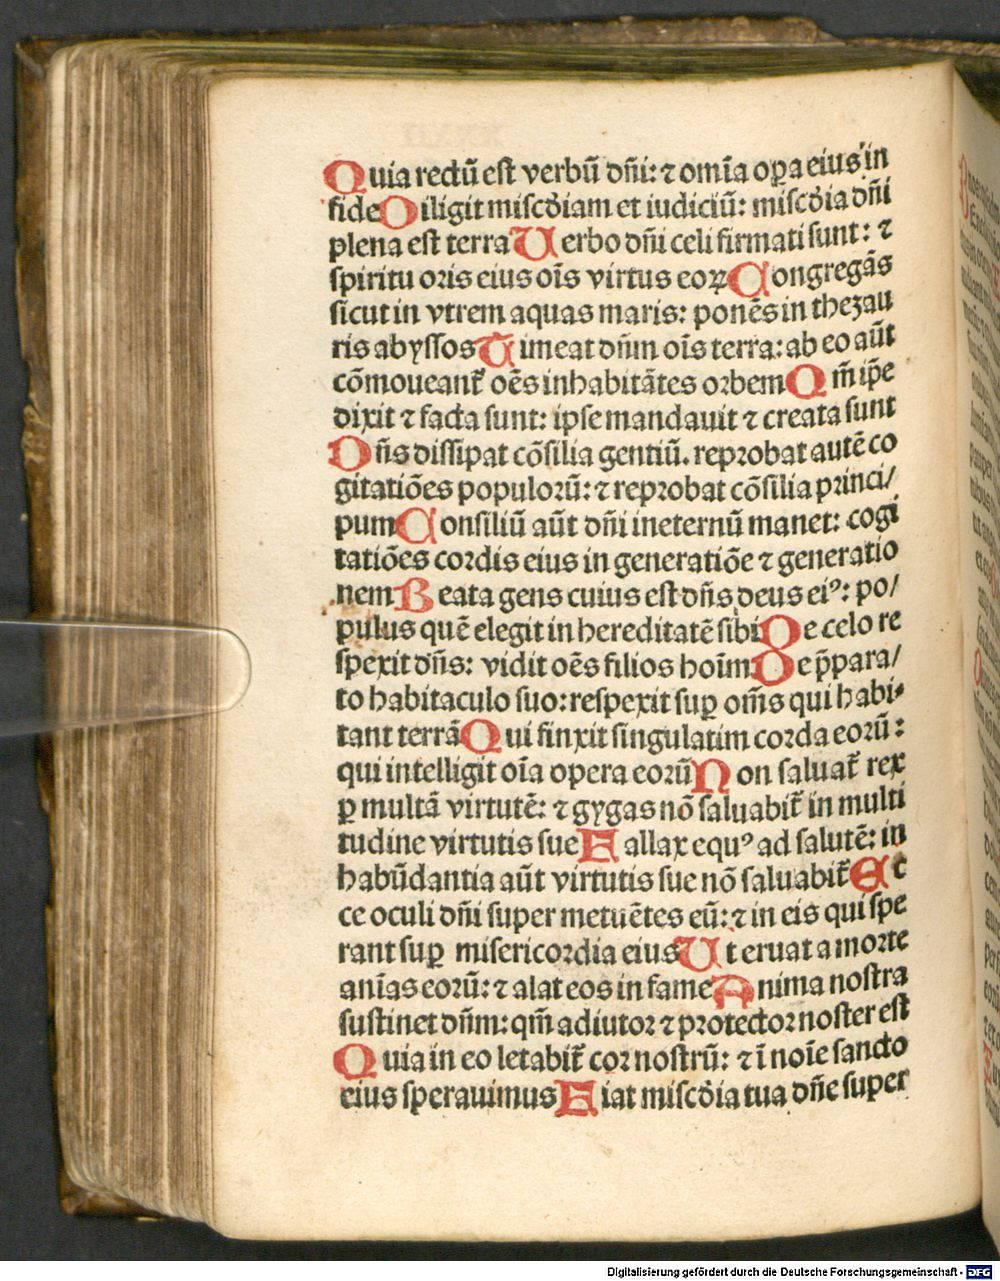 Quia rectū est verbū dñi: ⁊ omīa oꝑa eius in
fide Diligit miscḋiam et iudiciū: miscḋia dñi
plena est terra Uerbo dñi celi firmati sunt: ⁊
spiritu oris eius oīs virtus eoꝝ Congregās
sicut in vtrem aquas maris: ponēs in thezau
ris abyssos Timeat dñm oīs terra: ab eo aūt
cōmoueant᷑ oēs inhabitātes orbem Qm̄ ip̄e
dixit ⁊ facta sunt: ipse mandauit ⁊ creata sunt
Dñs dissipat cōsilia gentiū. reprobat autē co
gitatiōes populorū: ⁊ reprobat cōsilia princi/
pum Consiliū aūt dñi ineternū manet: cogi
tatiōes cordis eius in generatiōe ⁊ generatio
nem Beata gens cuius est dñs deus eiꝰ: po/
pulus quē elegit in hereditatē sibi De celo re
spexit dñs: vidit oēs filios hoīm De p̄para/
to habitaculo suo: respexit suꝑ om̄s qui habi-
tant terrā Qui finxit singulatim corda eorū:
qui intelligit oīa opera eorū Non saluat᷑ rex
ꝑ multā virtutē: ⁊ gygas nō saluabit᷑ in multi
tudine virtutis sue Fallax equꝰ ad salutē: in
habūdantia aūt virtutis sue nō saluabit᷑ Ec
ce oculi dñi super metuētes eū: ⁊ in eis qui spe
rant suꝑ misericordia eius Ut eruat a morte
anīas eorū: ⁊ alat eos in fame Anima nostra
sustinet dñm: qm̄ adiutor ⁊ protector noster est
Quia in eo letabit᷑ cor nostrū: ⁊ ī noīe sancto
eius sperauimus Fiat miscḋia tua dñe super
Digitalisierung gefördert durch die Deutsche Forschungsgemeinschaft - DFG